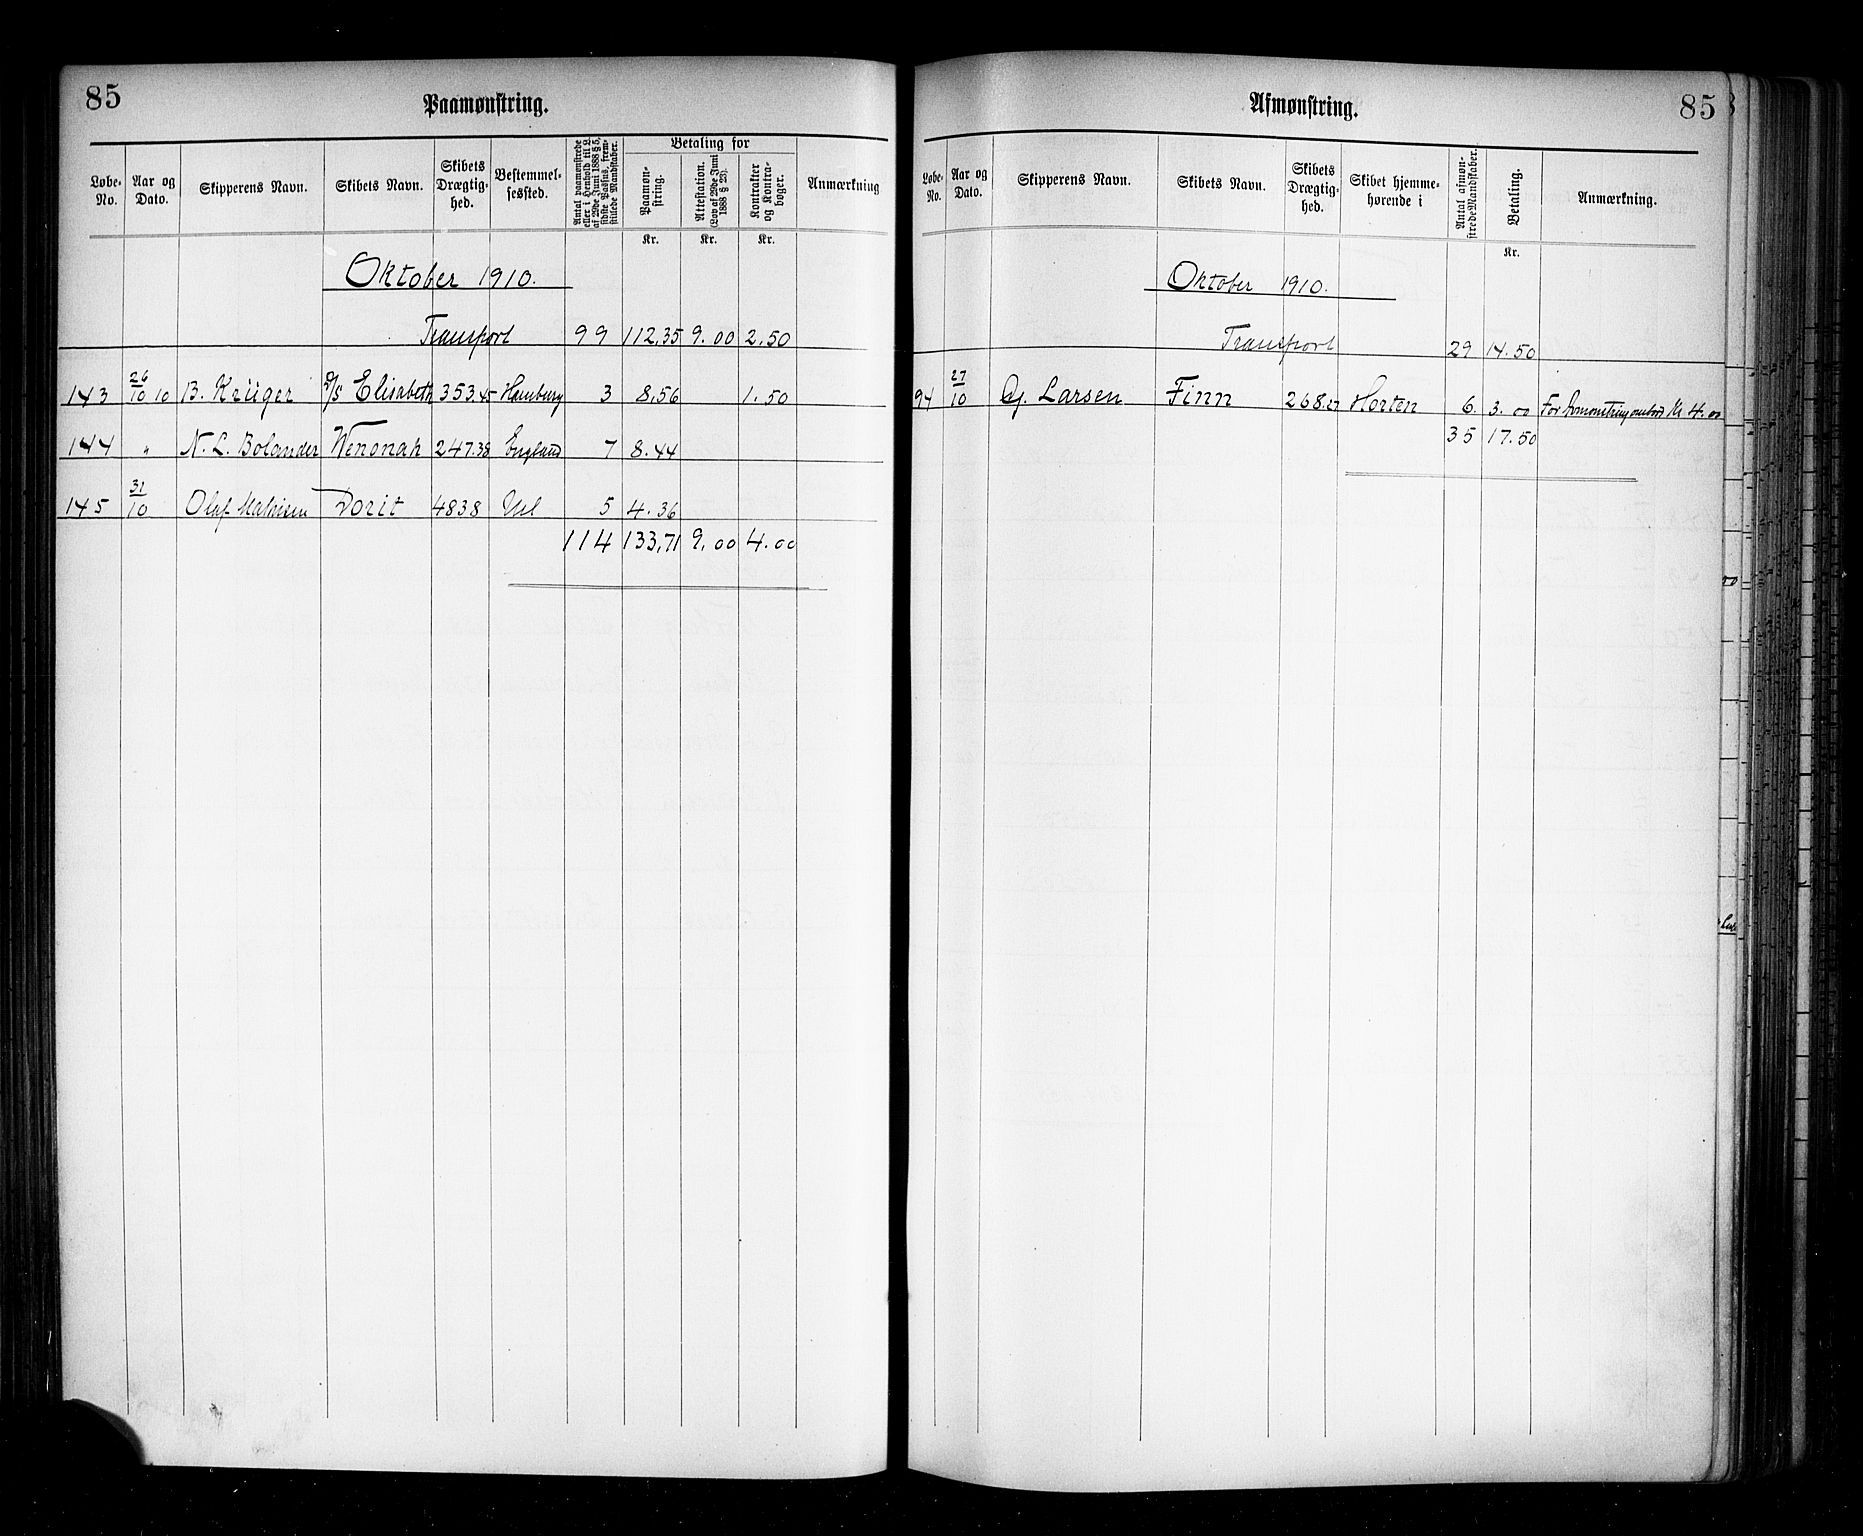 85
Paamønstring.
Løbe-No. | Aar og Dato. | Skipperens Navn. | Skibets Navn. | Skibets Drægtighed. | Bestemmelsessted. | Antal paamønstrede eller i Henhold til L. af 29de Juni 1888 § 5, sidste Passus, fremstillede Mandskaber. | Betaling for | Paamønstring. Kr. | Attestation. (Lov af 29de Juni 1888 § 23). Kr. | Kontrakter og Kontrabøger. Kr. | Anmærkning
Oktober 1910.
Transport 99 112,35 9.00 2.50
143 26/10 10 B. Krüger S/S Elisabeth 353.45 Hamburg 3 8,56 1.50
144 " N. L. Bolander Wenonah 247.38 England 7 8.44
145 31/10 Olaf Mathisen Dorit 4838 5 4.36
114 133,71 9.00 4.00
85
Afmønstring.
Løbe-No. | Aar og Dato. | Skipperens Navn. | Skibets Navn. | Skibets Drægtighed. | Skibet hjemmehørende i | Antal afmønstrede Mandskaber. | Betaling. Kr. | Anmærkning.
Oktober 1910.
Transport 29 14.50
94 27/10 Larsen Finn 268.27 Horten 6 3.00 For ombord Kr 4.00
35 17.50